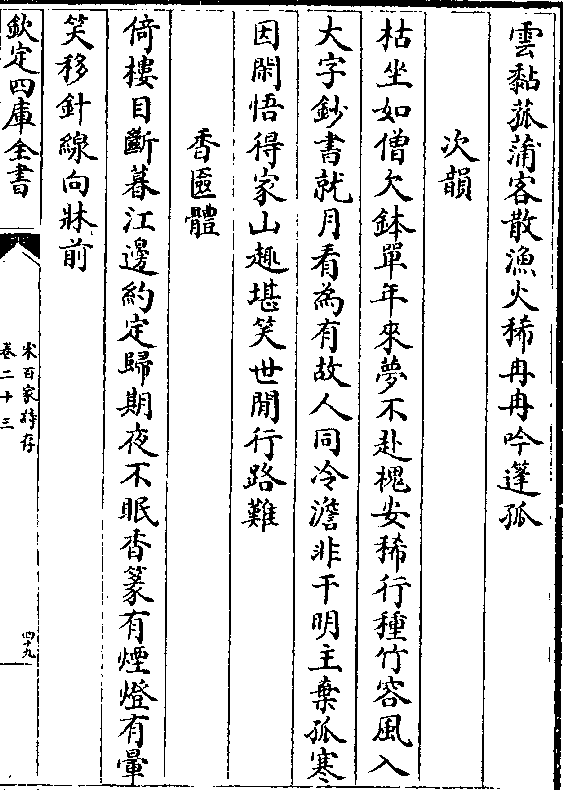 雲黏菰蒲客散漁火稀冉冉吟蓬孤
次韻
枯坐如僧欠鉢單年來夢不赴槐安稀行種竹容風入
大字鈔書就月看為有故人同冷澹非干明主棄孤寒
因閑悟得家山趣堪笑世間行路難
香匳體
倚樓目斷暮江邊約定歸期夜不眠香篆有煙燈有暈
笑移針線向牀前
欽定四庫全書
宋百家詩存
卷二十三
四九